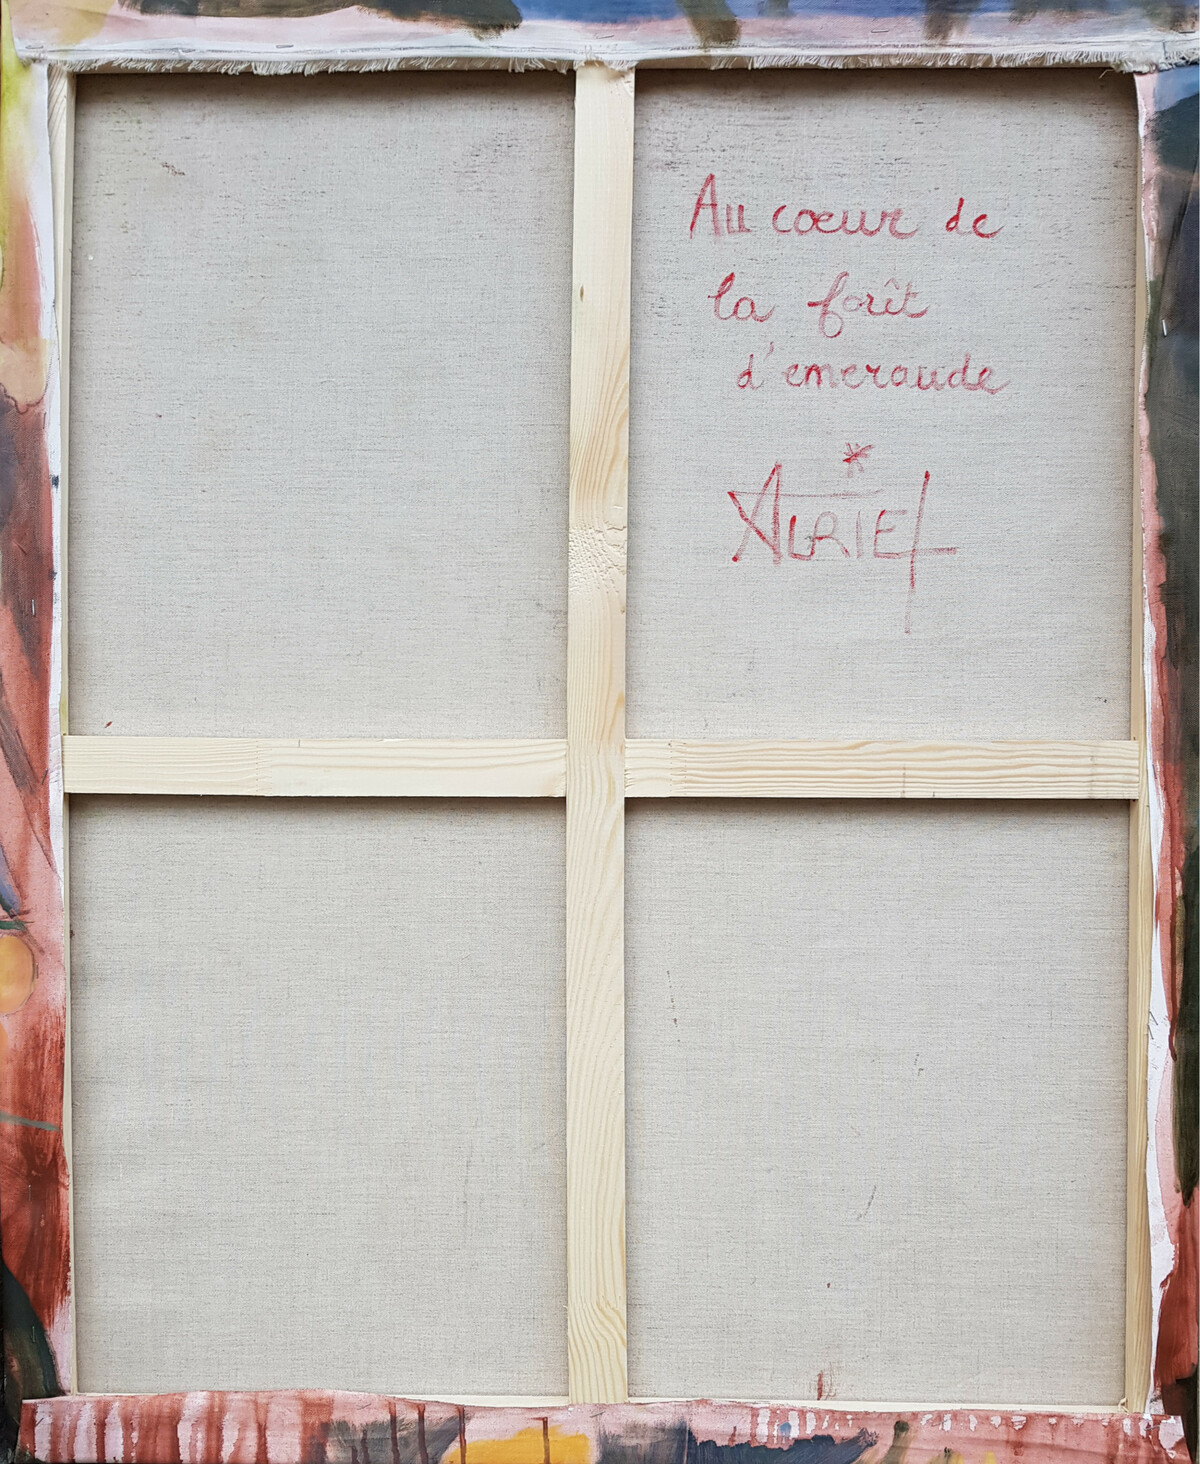 Au cœur de
la forêt
d'emeraude
*
ALRIEL